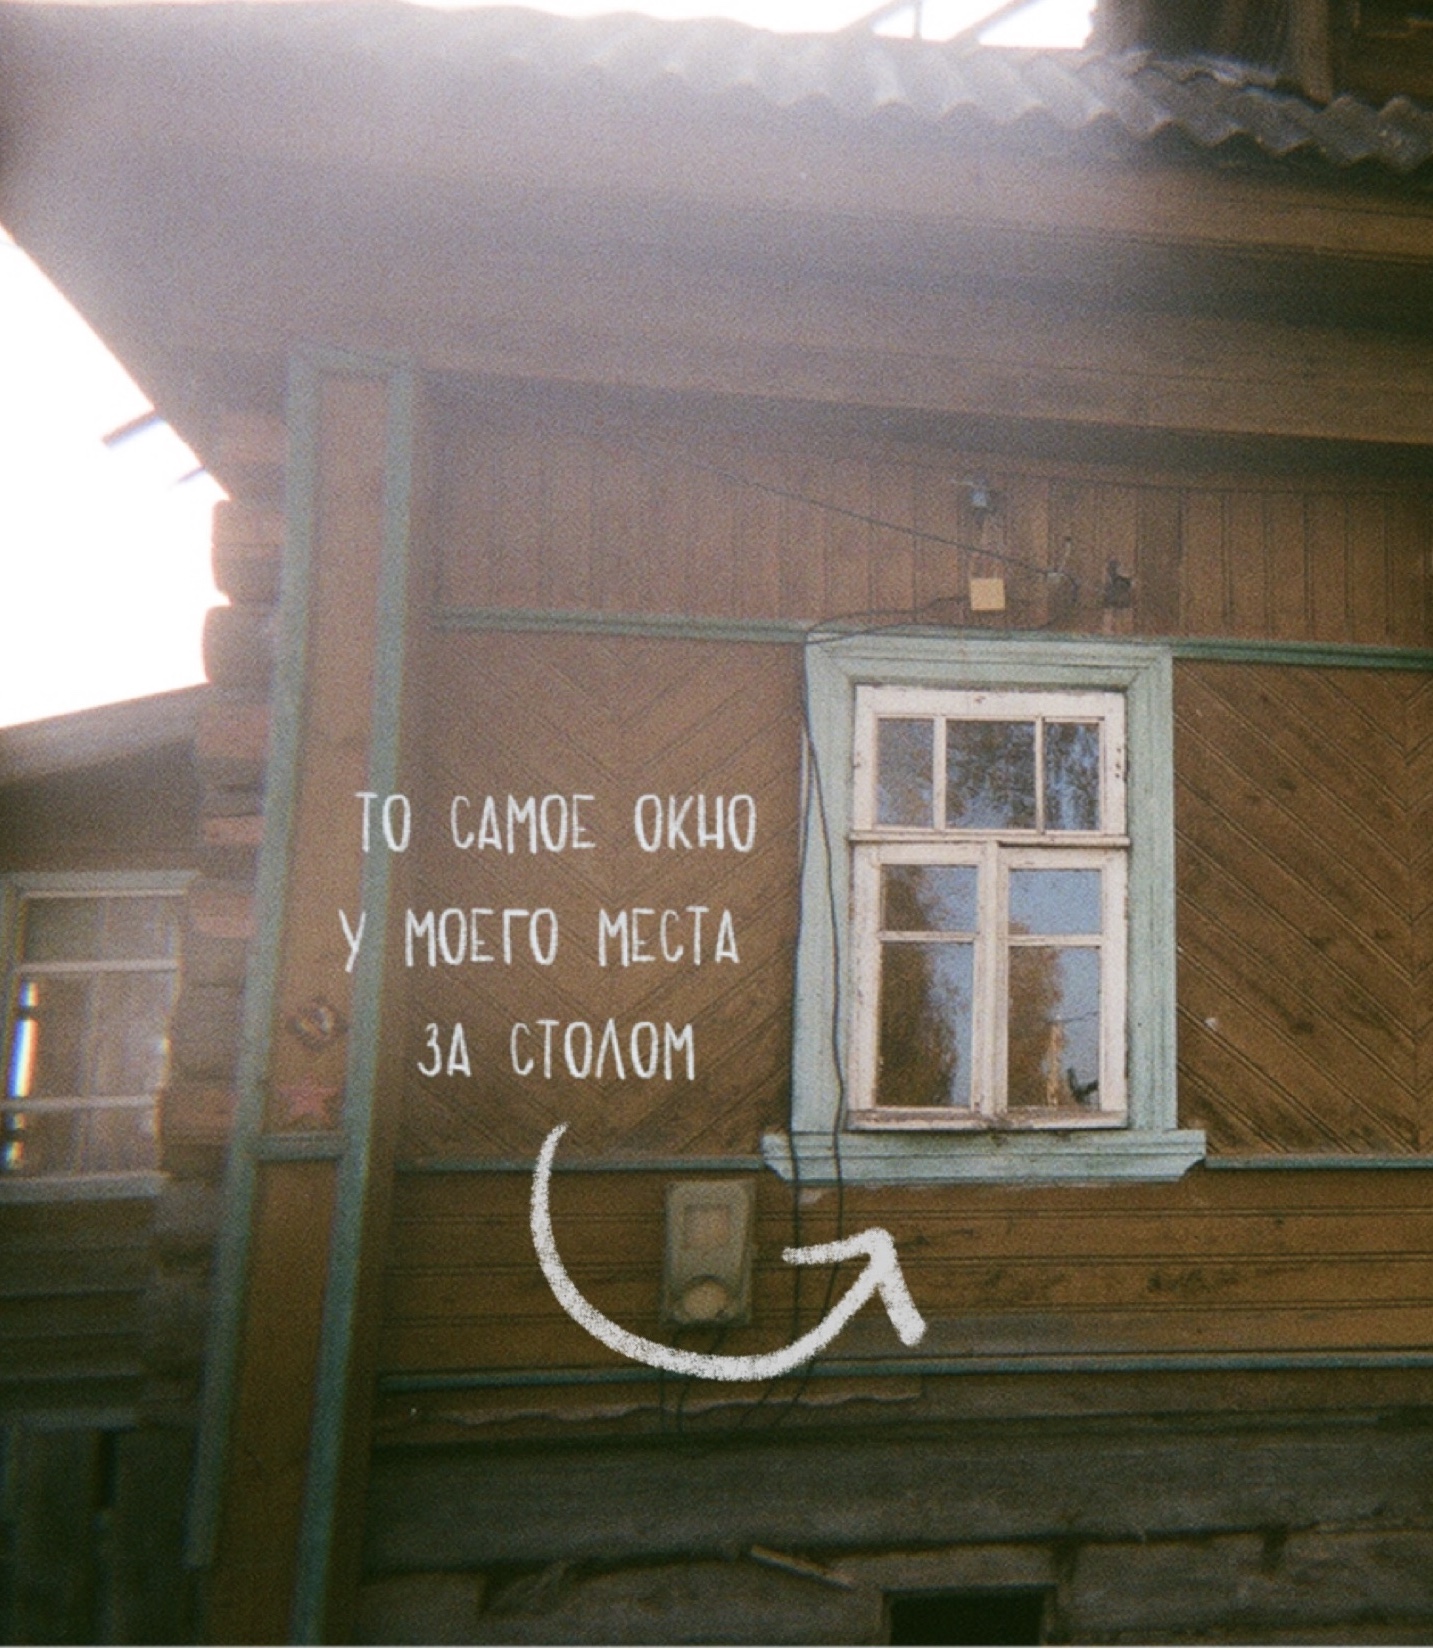 ТО САМОЕ ОКНО
У МОЕГО МЕСТА
ЗА СТОЛОМ